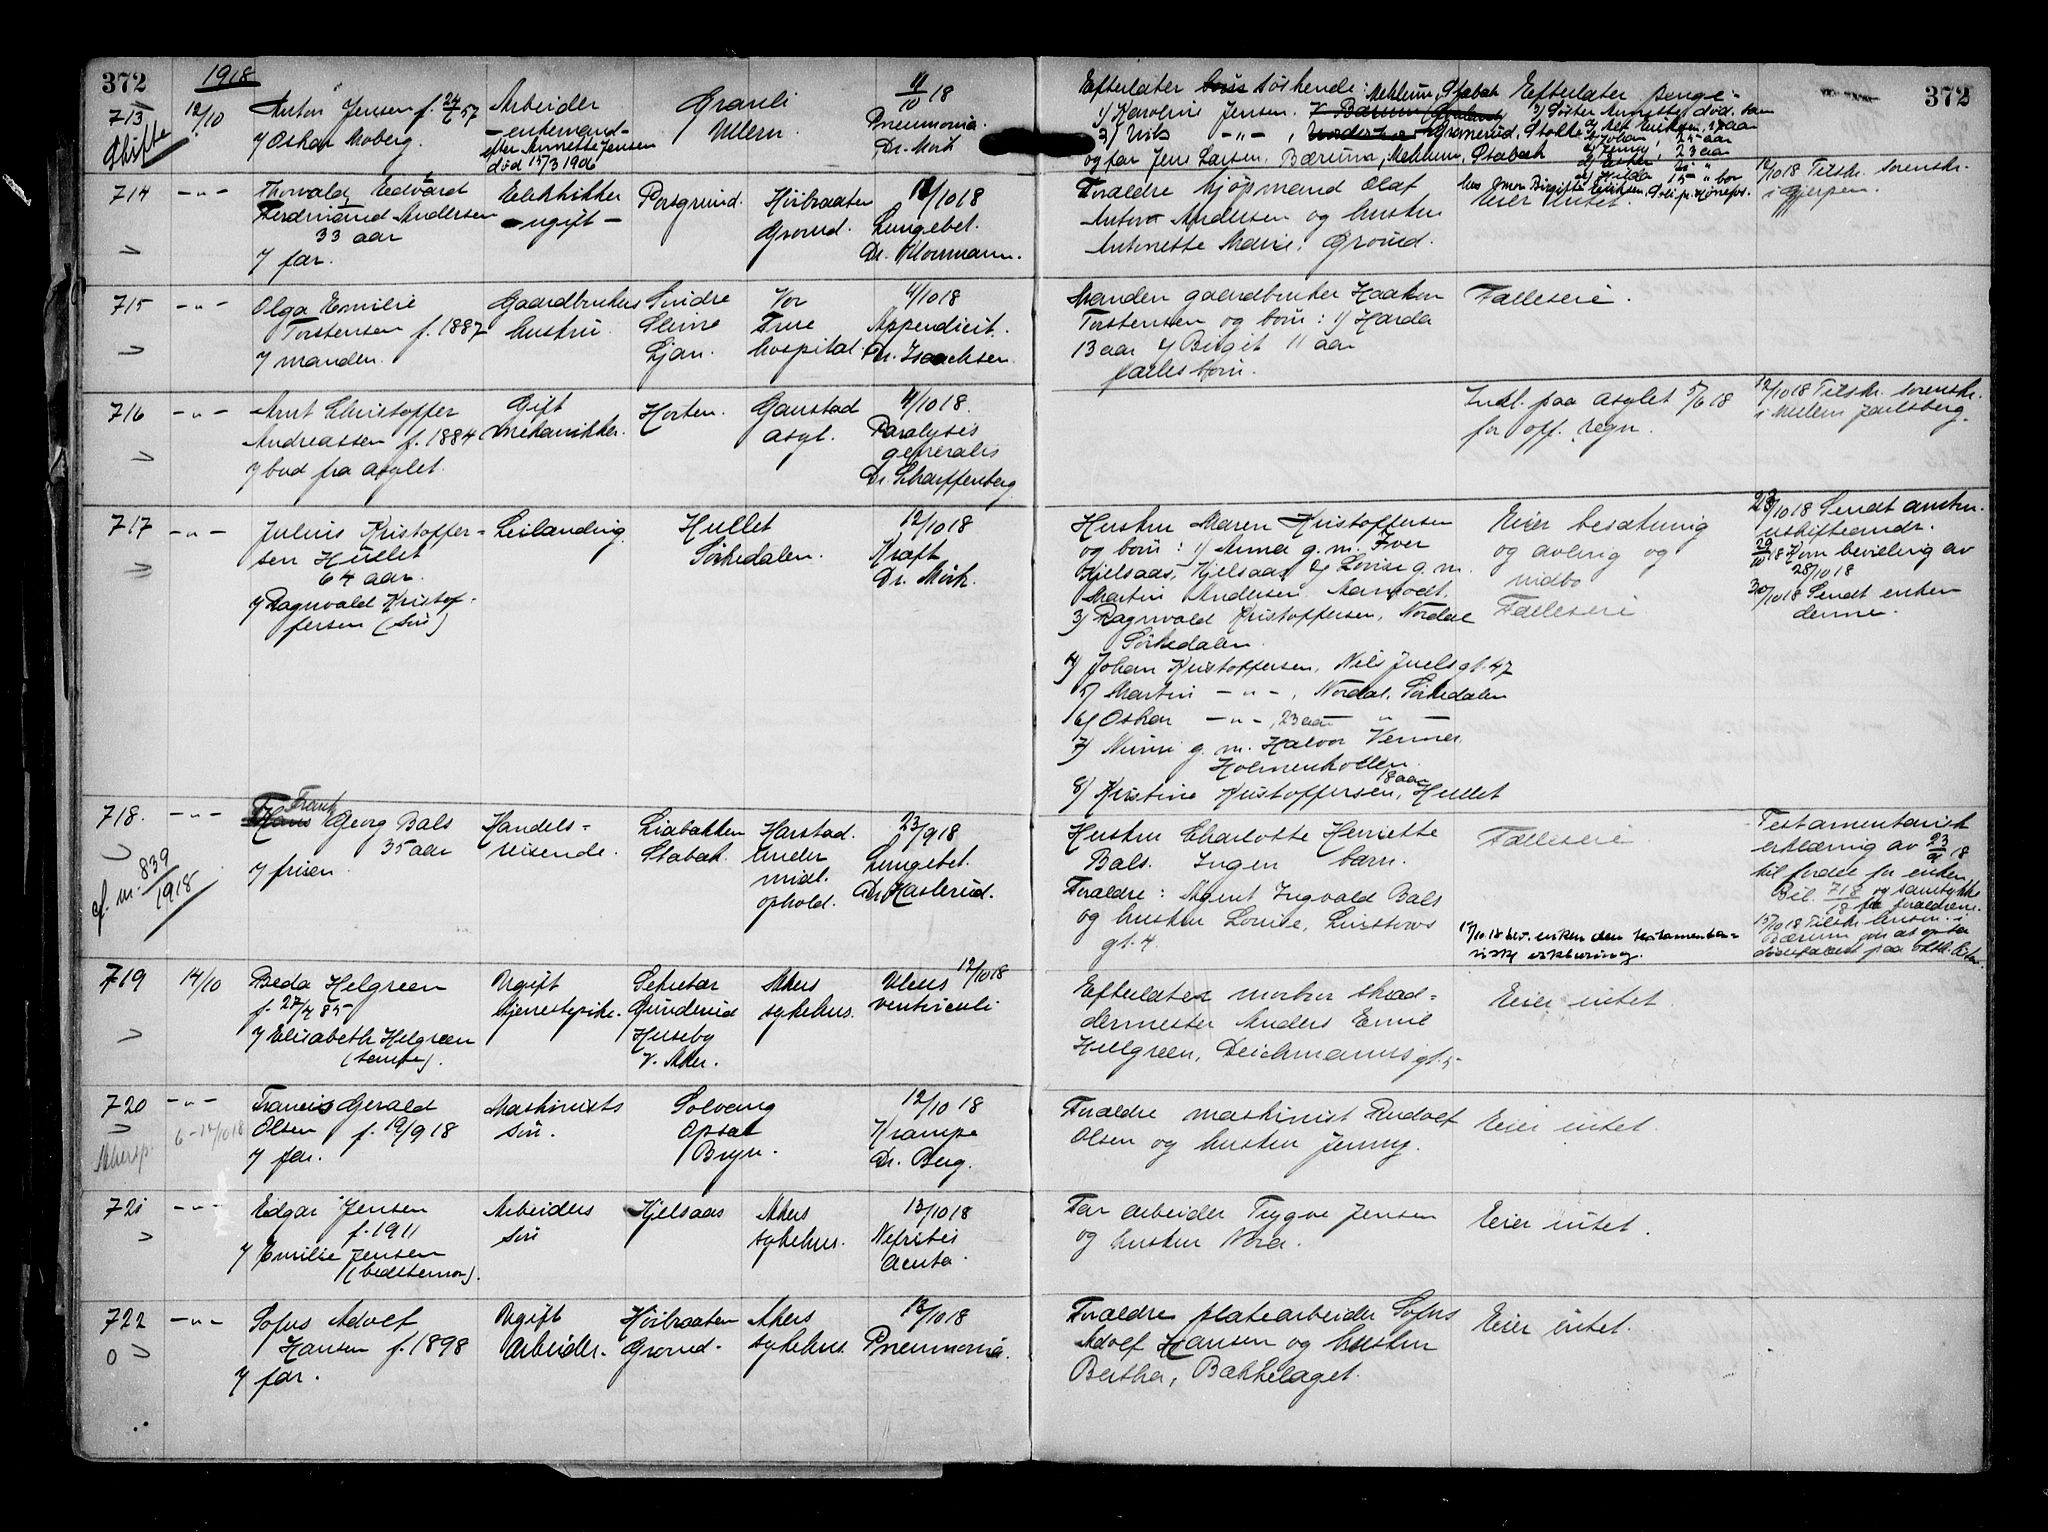 372
1918
372
713
Skifte
12/10
Anton Jensen f. 24/6 57
v/ Oskar Moberg.
Arbeider
- enkemand -
efter Annette Jensen
død 15/3 1906
Granli
Ullern.
11/10 18
Pneumonia.
Dr. Mørk
Efterlater søskende:
1) Karoline Jensen.
2) Nils -"- ,
og far Jens Larsen, Bærum, Stabæk
Efterlater penge
714
-"-
Thorvald Edvard
Ferdinand Andersen
33 aar
v/ far.
Elektriker
- ugift -
Porsgrund.
Hørbraaten
Grorud.
12/10 18
Lungebet.
Dr. Klouman.
Foraldre kjøpmand Olaf
Anton Andersen og hustru
Antonette Marie, Grorud.
Eier intet.
12/10 18 Tilskr. sorenskr.
i Gjerpen.
715
-"-
Olga Emilie
Torstensen f. 1887
v/ manden.
Gaardbrukers
hustru.
Søndre
Ljan.
Vor
Frue
hospital.
11/10 18
Appendicit.
Dr. Isachsen.
Manden gaardbruker Haakon
Torstensen og børn: 1) Harda
13 aar 2) Birgit 11 aar
fælles børn.
Fælleseie.
716
-"-
Arnt Christoffer
Andreassen f. 1884
v/ bud fra asylet.
Gift
mekaniker.
Horten.
Gaustad
asyl.
11/10 18.
Paralysis
generalis
Dr. Scharffenberg
Indl. paa asylet 5/6 18
for off. regn.
12/10 18 Tilskr. sorenskr.
i mellem Jarlsberg.
717
-"-
Julius Kristoffer-
sen Hullet
64 aar.
v/ Ragnvald Kristof-
fersen (søn)
Leilending.
Hullet
Sørkedalen.
12/10 18
Kræft
Dr. Mørk.
Hustru Maren Kristoffersen
og børn: 1) Anna g. m. Iver
Kjelsaas, Kjelsaas 2) Lovise g. m.
Martin Andersen, Aamodt.
3) Ragnvald Kristoffersen, Nordal
Sørkedalen.
4) Johan Kristoffersen, Nils Juels gt. 47
5) Martin -"- , Nordal. Sørkedalen
6) Oskar -"- , 23 aar " -
7) Nini g. m. Halvor Vermer,
Holmenkollen.
8) Kristine Kristoffersen, 18 aar, Hullet
Eier besætning
og avling og
indbo
Fælleseie
23/10 18 Sendt anskn.
uskifteandr.
29/10 18 Kom bevilling av
28/10 18
30/10 18 Sendt enken
denne.
718.
cf. nr. 839/1918
-"-
Frantz Georg Bals
35 aar
v/ frisen.
Handels-
reisende.
Liabakken
Stabæk.
Harstad.
under
midl.
ophold.
23/9 18
Lungebet.
Dr. Haslerud.
Hustru Charlotte Henriette
Bals. Ingen barn.
Foraldre: Agent Ingvald Bals
og hustru Louise, Linstows
gt. 4.
Fælleseie.
17/10 18 lev. enken den testamenta-
riske erklæring.
Testamentarisk
erklæring av 23/9 18
til fordel for enken
Bil. 718 og samtykke
fra foraldrene.
15/10 18 Tilskr.
719
14/10
Beda Helgreen
f. 27/4 85
v/ Elisabeth Helgreen
(tante).
Ugift
tjenestepike.
Sekretær
Gunderud
Huseby
V. Aker.
Akers
sykehus.
12/10 18
Ulcus
ventriculi
Efterlater morbror skræd-
dermester Anders Emil
Hellgreen, Deichmanns gt. 5
Eier intet.
720
Akersp.
-"-
6-14/10 18
Francis Gerald
Olsen f. 19/9 18
v/ far.
Maskinists
søn.
Solvang
Opsal
Bryn.
12/10 18
Krampe
Dr. Berg.
Foraldre maskinist Rudolf
Olsen og hustru Jenny.
Eier intet.
721
-"-
Edgar Jensen
f. 1911
v/ Emilie Jensen
(bedstemor).
Arbeiders
søn
Kjelsaas
Akers
sykehus.
13/10 18
Nefritis
acuta.
Far arbeider Trygve Jensen
og hustru Nora.
Eier intet.
722
-"-
Sofus Adolf
Hansen f. 1898
v/ far.
Ugift
arbeider.
Hørbraaten
Grorud.
Akers
sykehus.
13/10 18
Pneumonia.
Foraldre platearbeider Sofus
Adolf Hansen og hustru
Bertha, Bækkelaget.
Eier intet.